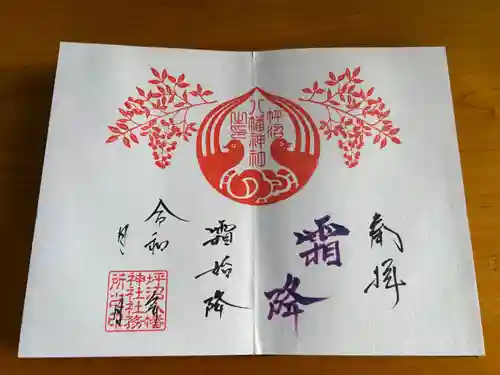 坪沼
八幡神社
之印
奉拝
霜降
霜始降
令和
月
坪沼八幡
神社社務
所